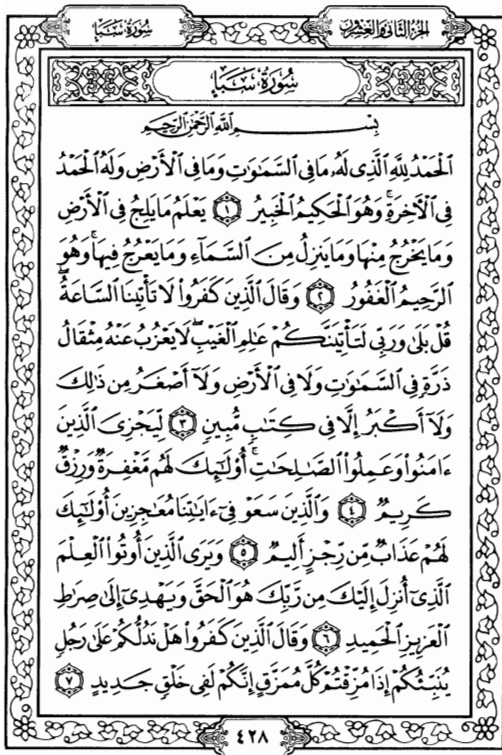 الجزء الثاني والعشرون
سورة سبإ
سورة سبإ
بِسْمِ اللَّهِ الرَّحْمَٰنِ الرَّحِيمِ
الْحَمْدُ لِلَّهِ الَّذِي لَهُ مَا فِي السَّمَاوَاتِ وَمَا فِي الْأَرْضِ وَلَهُ الْحَمْدُ
فِي الْآخِرَةِ ۚ وَهُوَ الْحَكِيمُ الْخَبِيرُ ۝١ يَعْلَمُ مَا يَلِجُ فِي الْأَرْضِ
وَمَا يَخْرُجُ مِنْهَا وَمَا يَنزِلُ مِنَ السَّمَاءِ وَمَا يَعْرُجُ فِيهَا ۚ وَهُوَ
الرَّحِيمُ الْغَفُورُ ۝٢ وَقَالَ الَّذِينَ كَفَرُوا لَا تَأْتِينَا السَّاعَةُ ۖ
قُلْ بَلَىٰ وَرَبِّي لَتَأْتِيَنَّكُمْ عَالِمِ الْغَيْبِ ۖ لَا يَعْزُبُ عَنْهُ مِثْقَالُ
ذَرَّةٍ فِي السَّمَاوَاتِ وَلَا فِي الْأَرْضِ وَلَا أَصْغَرُ مِن ذَٰلِكَ
وَلَا أَكْبَرُ إِلَّا فِي كِتَابٍ مُّبِينٍ ۝٣ لِّيَجْزِيَ الَّذِينَ
آمَنُوا وَعَمِلُوا الصَّالِحَاتِ ۚ أُولَٰئِكَ لَهُم مَّغْفِرَةٌ وَرِزْقٌ
كَرِيمٌ ۝٤ وَالَّذِينَ سَعَوْ فِي آيَاتِنَا مُعَاجِزِينَ أُولَٰئِكَ
لَهُمْ عَذَابٌ مِّن رِّجْزٍ أَلِيمٌ ۝٥ وَيَرَى الَّذِينَ أُوتُوا الْعِلْمَ
الَّذِي أُنزِلَ إِلَيْكَ مِن رَّبِّكَ هُوَ الْحَقَّ وَيَهْدِي إِلَىٰ صِرَاطِ
الْعَزِيزِ الْحَمِيدِ ۝٦ وَقَالَ الَّذِينَ كَفَرُوا هَلْ نَدُلُّكُمْ عَلَىٰ رَجُلٍ
يُنَبِّئُكُمْ إِذَا مُزِّقْتُمْ كُلَّ مُمَزَّقٍ إِنَّكُمْ لَفِي خَلْقٍ جَدِيدٍ ۝٧
٤٢٨